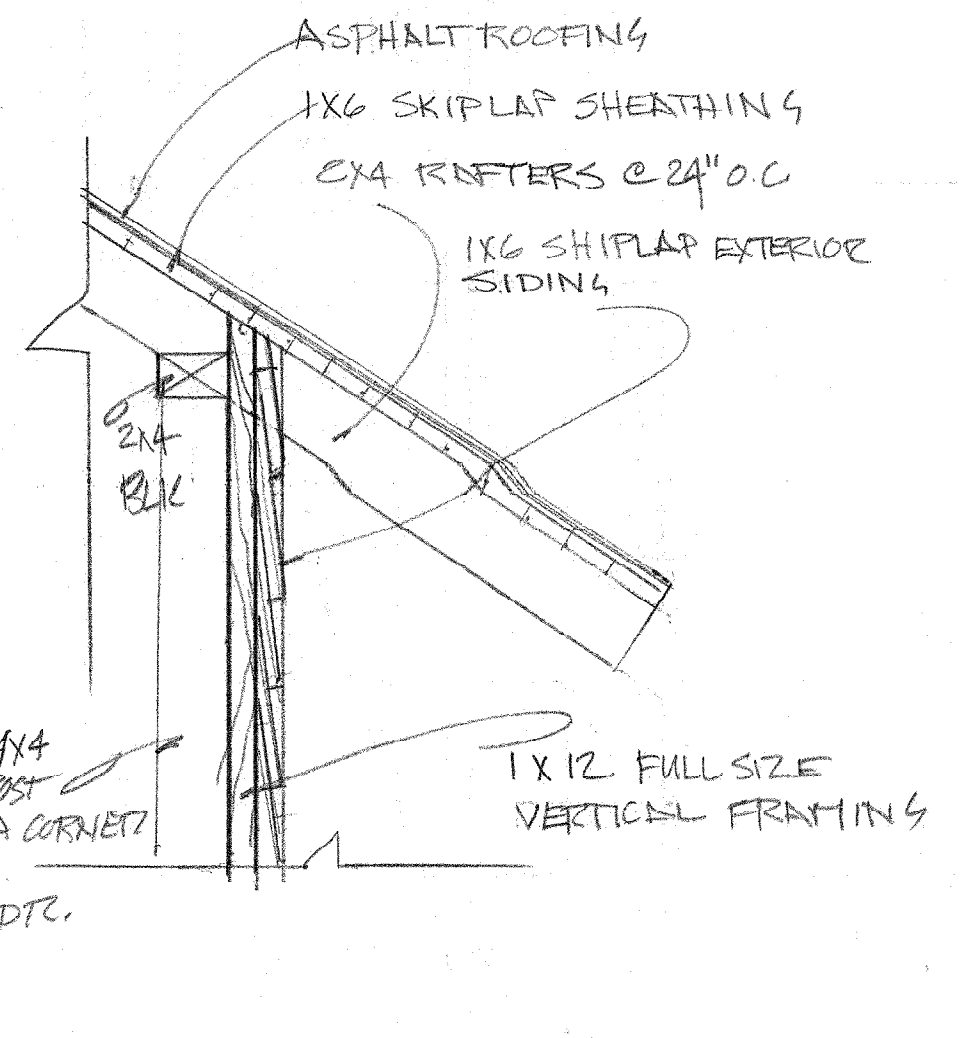 ASPHALT ROOFING
1X6 SKIPLAP SHEATHING
2X4 RAFTERS @ 24" O.C
1X6 SHIPLAP EXTERIOR
SIDING
2X4
BLK
4X4
OST
A CORNER
1 X 12 FULL SIZE
VERTICAL FRAMING
DTR.